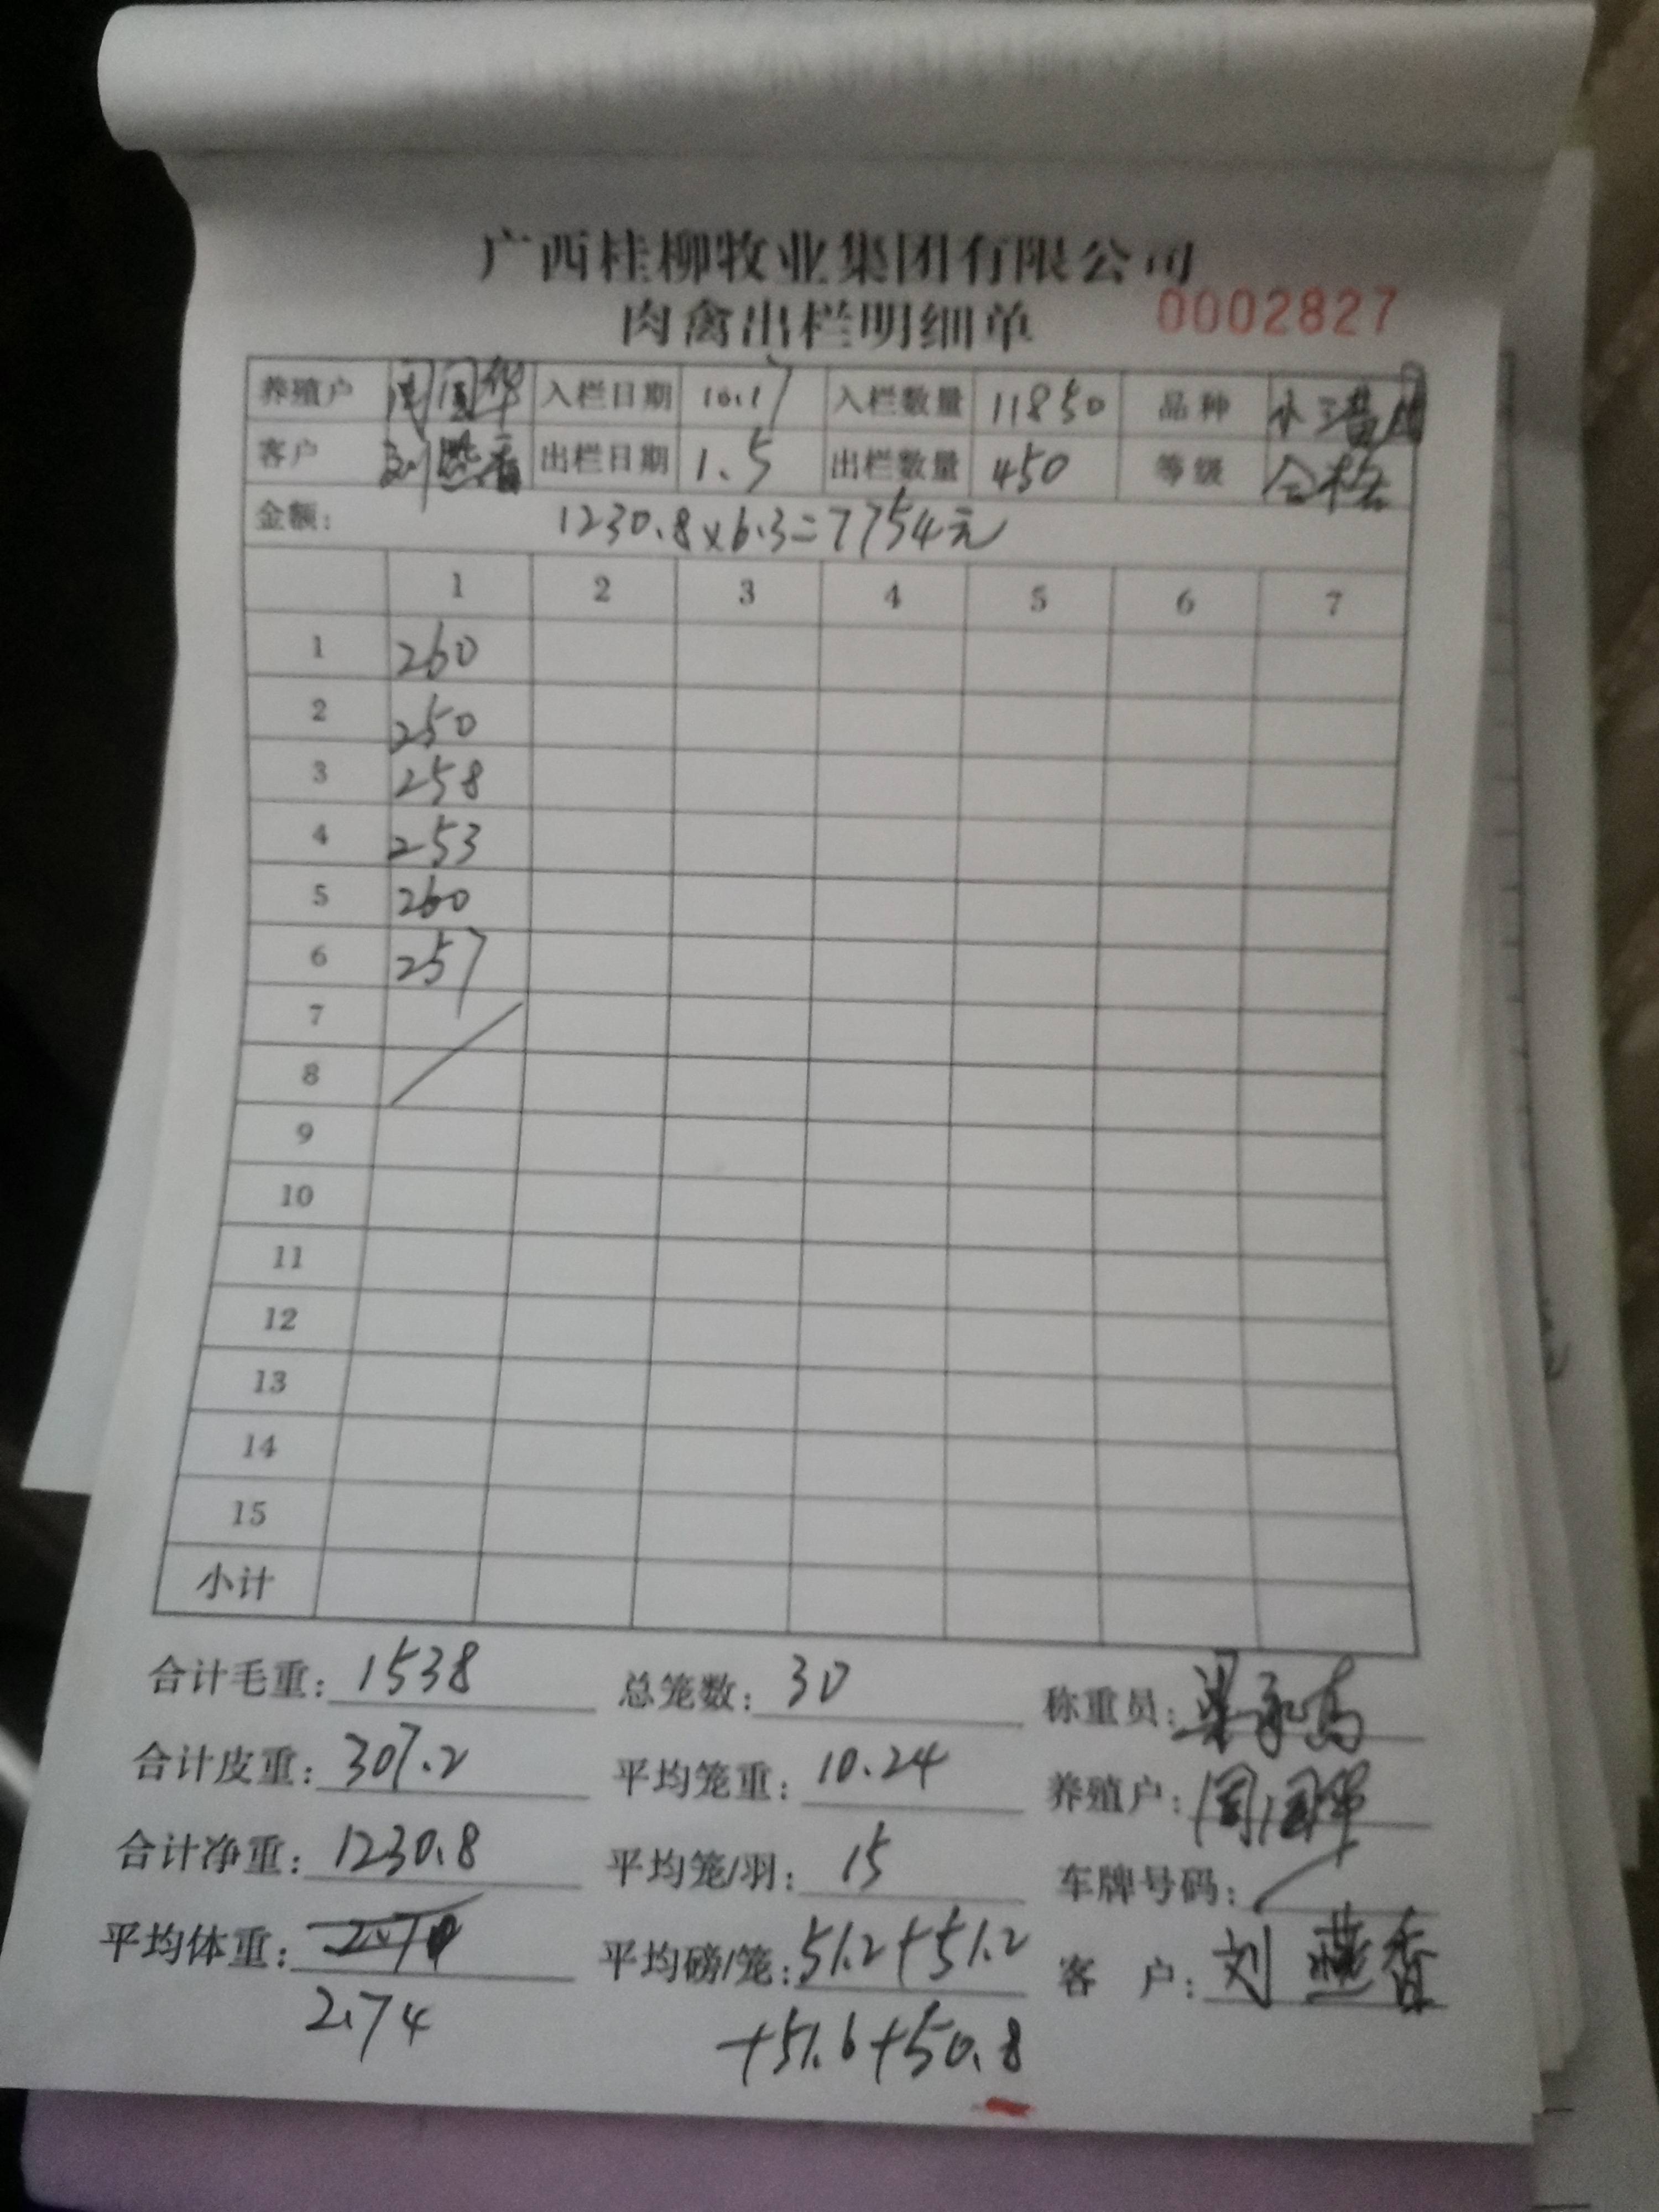 广西桂柳牧业集团有限公司
肉禽出栏明细单 0002827
养殖户 周国华 入栏日期 10.17 入栏数量 11850 品种
客户 刘燕香 出栏日期 1.5 出栏数量 450 等级 合格
金额: 1230.8×6.3=7754元
1 2 3 4 5 6 7
1 260
2 250
3 258
4 253
5 260
6 257
7
8
9
10
11
12
13
14
15
小计
合计毛重: 1538 总笼数: 30 称重员:
合计皮重: 307.2 平均笼重: 10.24 养殖户: 周国华
合计净重: 1230.8 平均笼/羽: 15 车牌号码:
平均体重: 平均磅/笼: 51.2+51.2 客 户: 刘燕香
2.74 +51.6+50.8